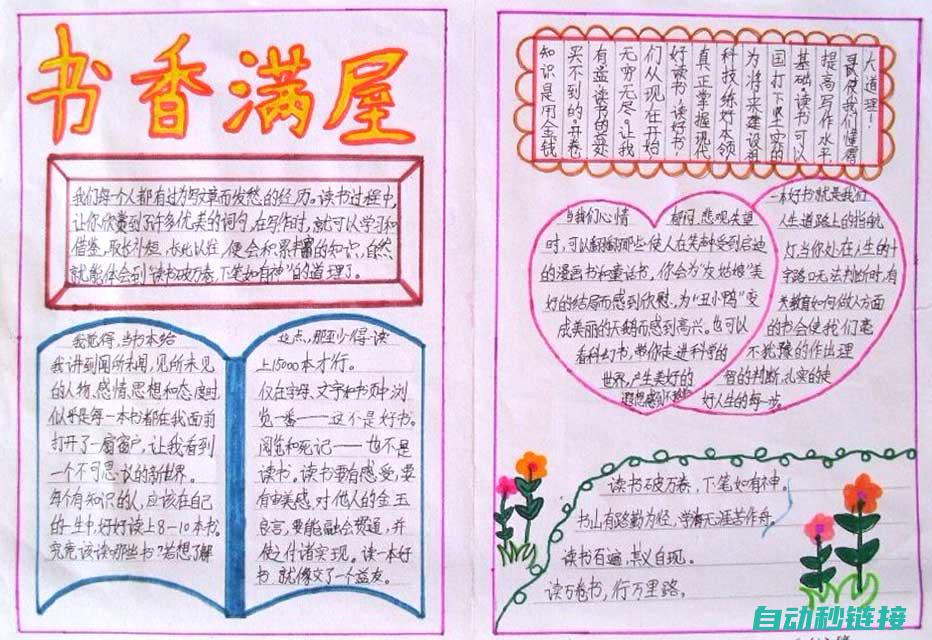 书香满屋
我们每一个人都有过为写文章而发愁的经历。读书过程中,
让你欣赏到了许多优美的词句,在写作时,就可以学习和
借鉴,取长补短,长此以往,便会积累丰富的知识,自然
就能体会到“读书破万卷,下笔如有神”的道理了。
我觉得,当书本给
我讲到闻所未闻,见所未见
的人物、感情、思想和态度时,
似乎是每一本书都在我面前
打开了一扇窗户,让我看到
一个不可思议的新世界。
每个有知识的人,应该在自己
的一生中,好好读上8-10本书。
究竟该读哪些书?若想了解
这点,那至少得读
上15000本才行。
仅在字母、文字和书页中浏
览一番——这不是好书。
阅览和死记——也不是
读书。读书要有感受,要
有审美感,对他人的金玉
良言,要能融会贯通,并
使之付诸实现。读一本好
书,就像交了一个益友。
大道理!
哥使我们懂得
提高写作水平,
基础。读书可以
国打下坚实的
为将来建设祖
科技,练好本领
真正掌握现代
好读书,读好书,
们从现在开始
无穷无尽。让我
有益,读书的获
买不到的。开卷
知识是用金钱
当我们心情 郁闷,悲观失望
时,可以翻翻那些使人在笑声中受到启迪
的漫画书和童话书。你会为“灰姑娘”美
好的结局而感到欣慰,为“丑小鸭”变
成美丽的天鹅而感到高兴。也可以
看科幻书,带你走进科学的
世界,产生美好的
遐想感到不
一本好书就是我们
人生道路上的指航
灯,当你处在人生的十
字路口无法判断时,有
关教育如何做人方面
的书会使我们毫
不犹豫的作出理
智的判断,扎实的走
好人生的每一步。
读书破万卷,下笔如有神。
书山有路勤为径,学海无涯苦作舟。
读书百遍,其义自现。
读万卷书,行万里路。
自动秒链接